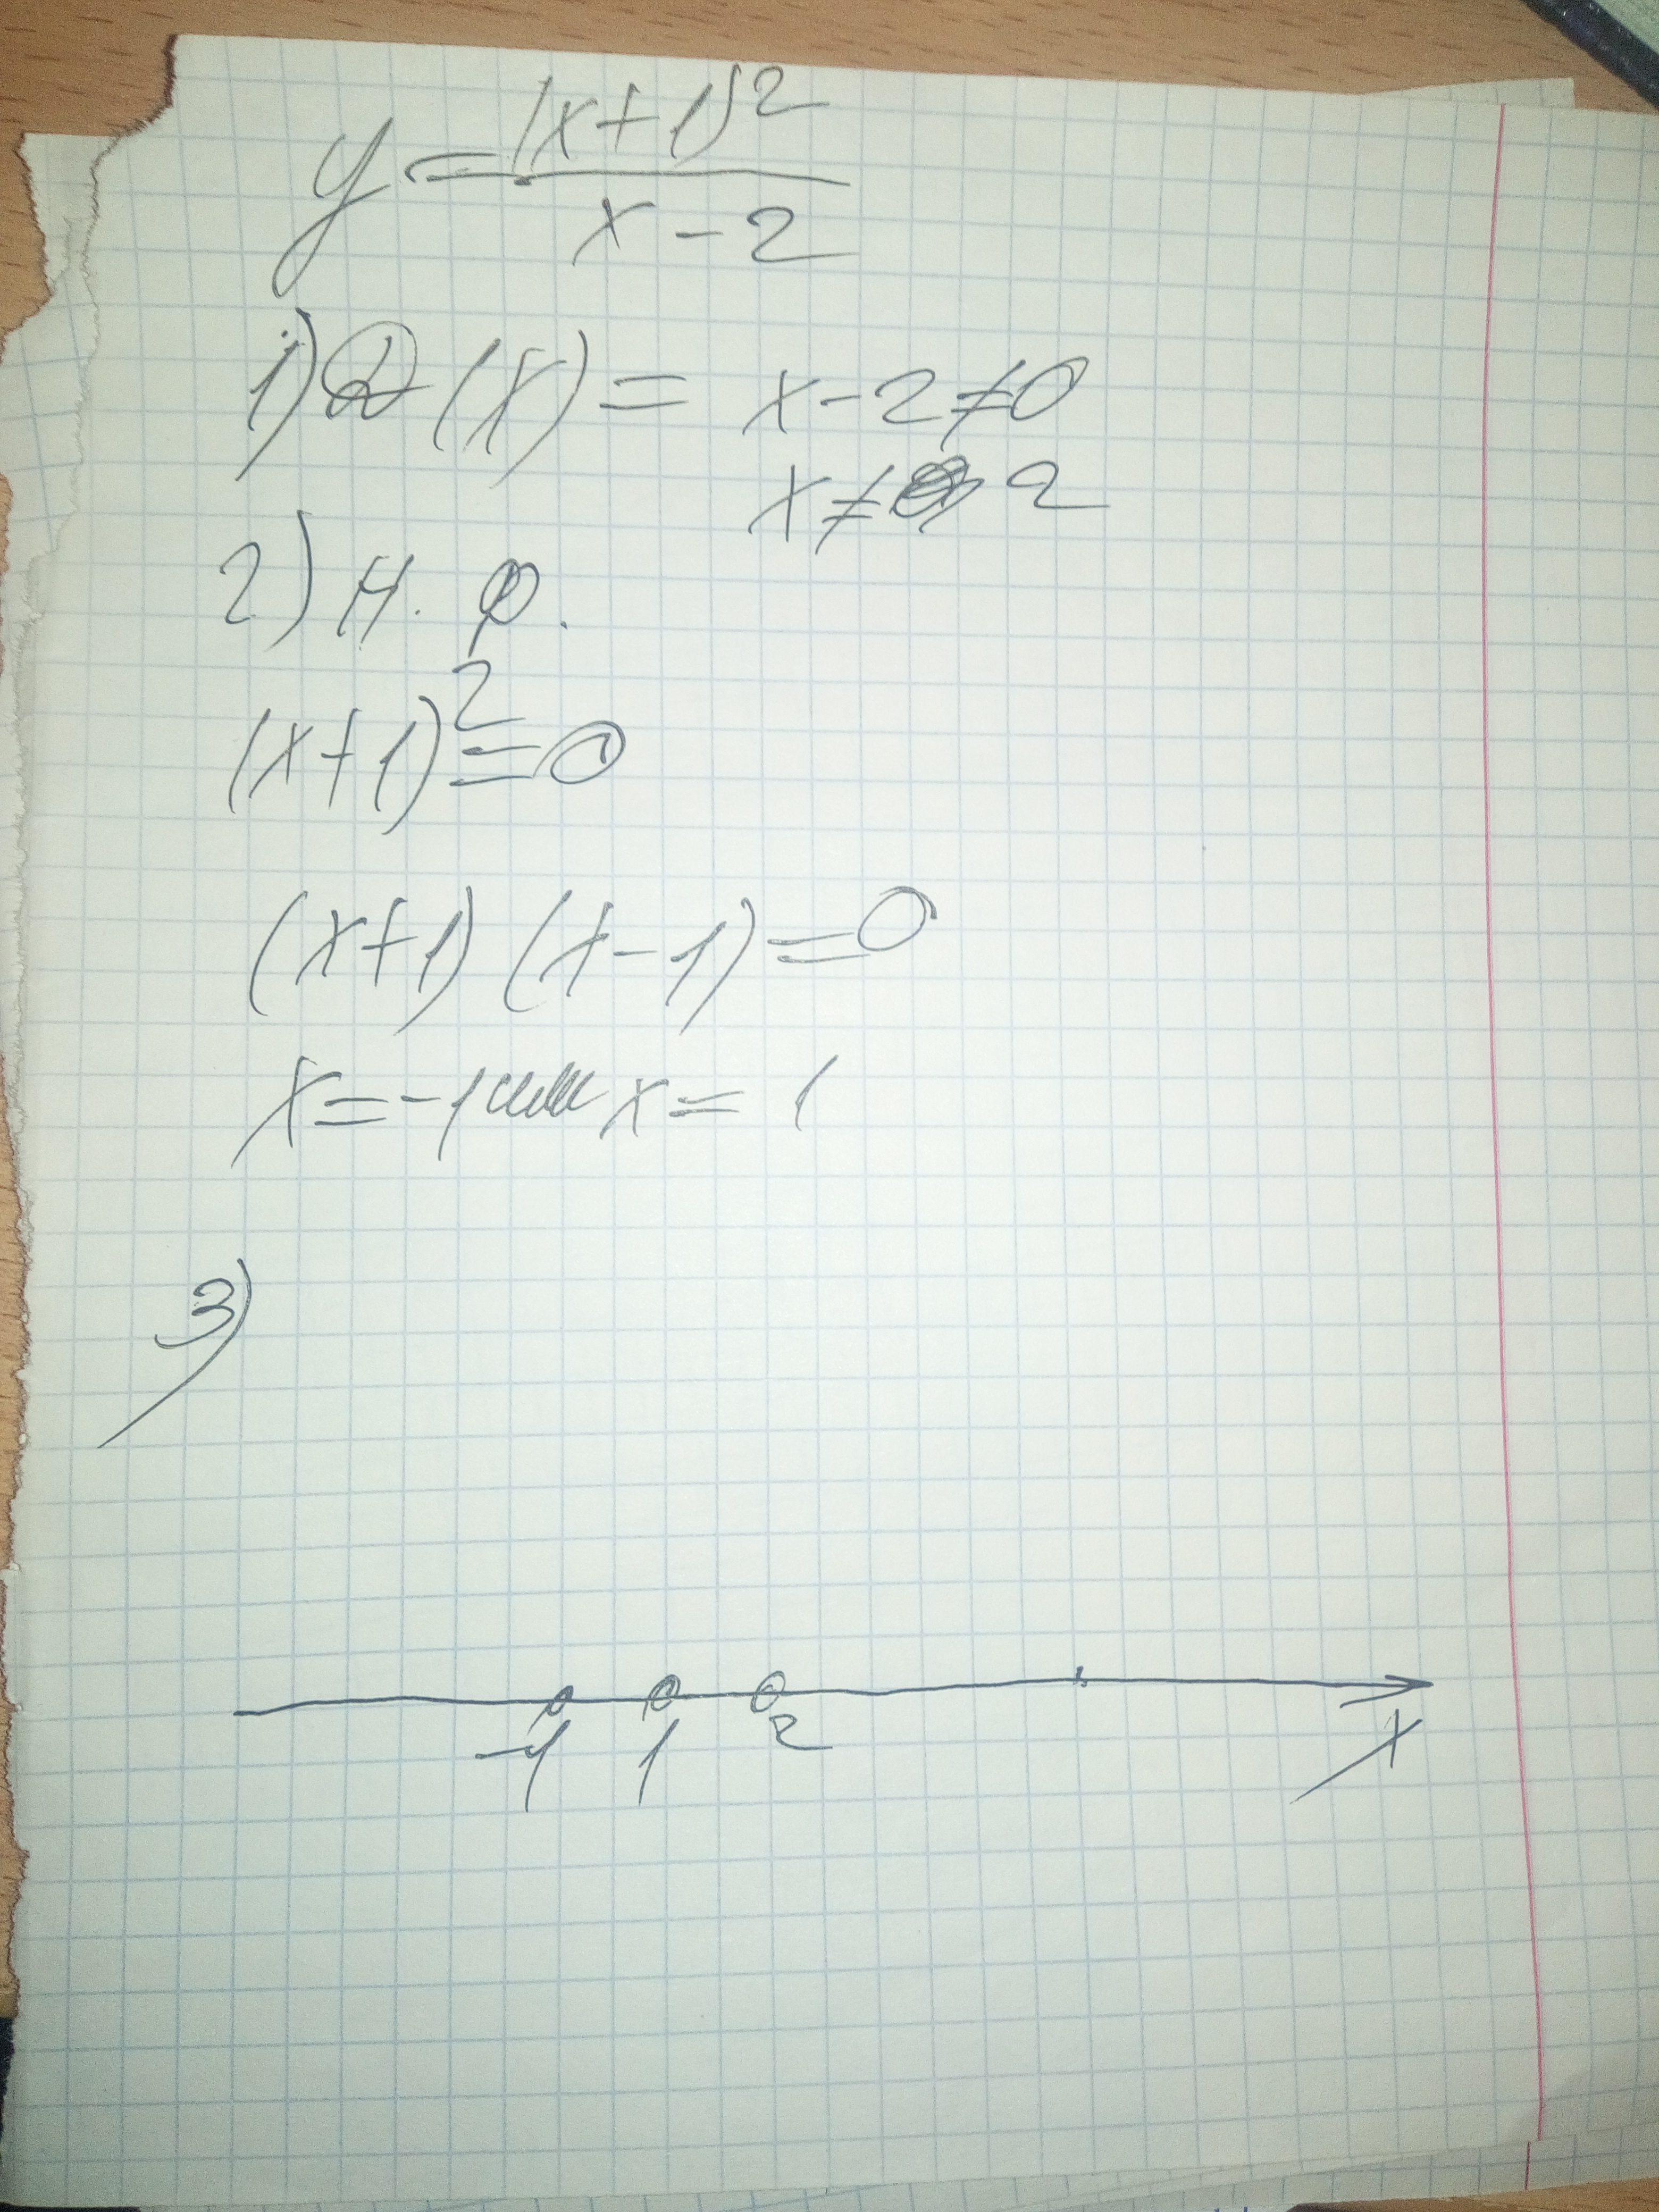 y = (x+1)²
x - 2
1) D (x) = x - 2 ≠ 0
x ≠ 2
2) Н. Ф.
(x+1)² = 0
(x+1) (x-1) = 0
x = -1 или x = 1
3)
-1 1 2 x